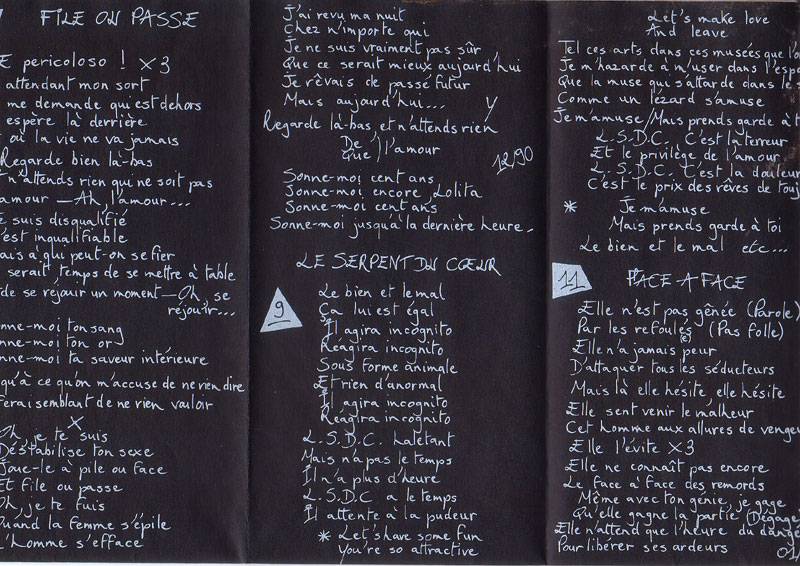 FILE OU PASSE
E pericoloso ! x3
attendant mon sort
me demande qui est dehors
espère là derrière
où la vie ne va jamais
Regarde bien là-bas
n'attends rien qui ne soit pas
amour — Ah, l'amour...
suis disqualifié
'est inqualifiable
ais à qui peut-on se fier
serait temps de se mettre à table
de se réjouir un moment — Oh, se
réjouir...
nne-moi ton sang
nne-moi ton or
nne-moi ta saveur intérieure
qu'à ce qu'on m'accuse de ne rien dire
ferai semblant de ne rien valoir
X
Oh, je te suis
Déstabilise ton sexe
Joue-le à pile ou face
Et file ou passe
Oh, je te fuis
Quand la femme s'épile
L'homme s'efface
J'ai revu ma nuit
Chez n'importe qui
Je ne suis vraiment pas sûr
Que ce serait mieux aujourd'hui
Je rêvais de passé futur
Mais aujourd'hui...
Regarde là-bas, et n'attends rien
De
Que l'amour
12/90
Sonne-moi cent ans
Sonne-moi encore, Lolita
Sonne-moi cent ans
Sonne-moi jusqu'à la dernière heure.
LE SERPENT DU CŒUR
9
Le bien et le mal
Ça lui est égal
Il agira incognito
Réagira incognito
Sous forme animale
Et rien d'anormal
Il agira incognito
Réagira incognito
L.S.D.C. haletant
Mais n'a pas le temps
Il n'a plus d'heure
L.S.D.C a le temps
Il attente à la pudeur
* Let's have some fun
You're so attractive
Let's make love
And leave
Tel ces arts dans ces musées que l'o
Je m'hazarde à m'user dans l'espe
Que la muse qui s'attarde dans le s
Comme un lézard s'amuse
Je m'amuse/Mais prends garde à t
L.S.D.C. C'est la terreur
Et le privilège de l'amour
L.S.D.C. C'est la douleur
C'est le prix des rêves de touj
* Je m'amuse
Mais prends garde à toi
Le bien et le mal etc...
11
FACE A FACE
Elle n'est pas gênée (Parole)
Par les refoulés (Pas folle)
Elle n'a jamais peur
D'attaquer tous les séducteurs
Mais là elle hésite, elle hésite
Elle sent venir le malheur
Cet homme aux allures de vengeu
Elle l'évite x3
Elle ne connaît pas encore
Le face à face des remords
Même avec ton génie, je gage
Qu'elle gagne la partie (Dégage)
Elle n'attend que l'heure du dange
Pour libérer ses ardeurs
01/